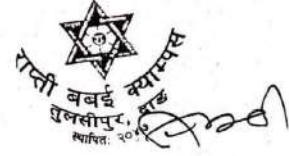 राप्ती बबई क्याम्पस
तुलसीपुर, दाङ
स्थापितः २०४७